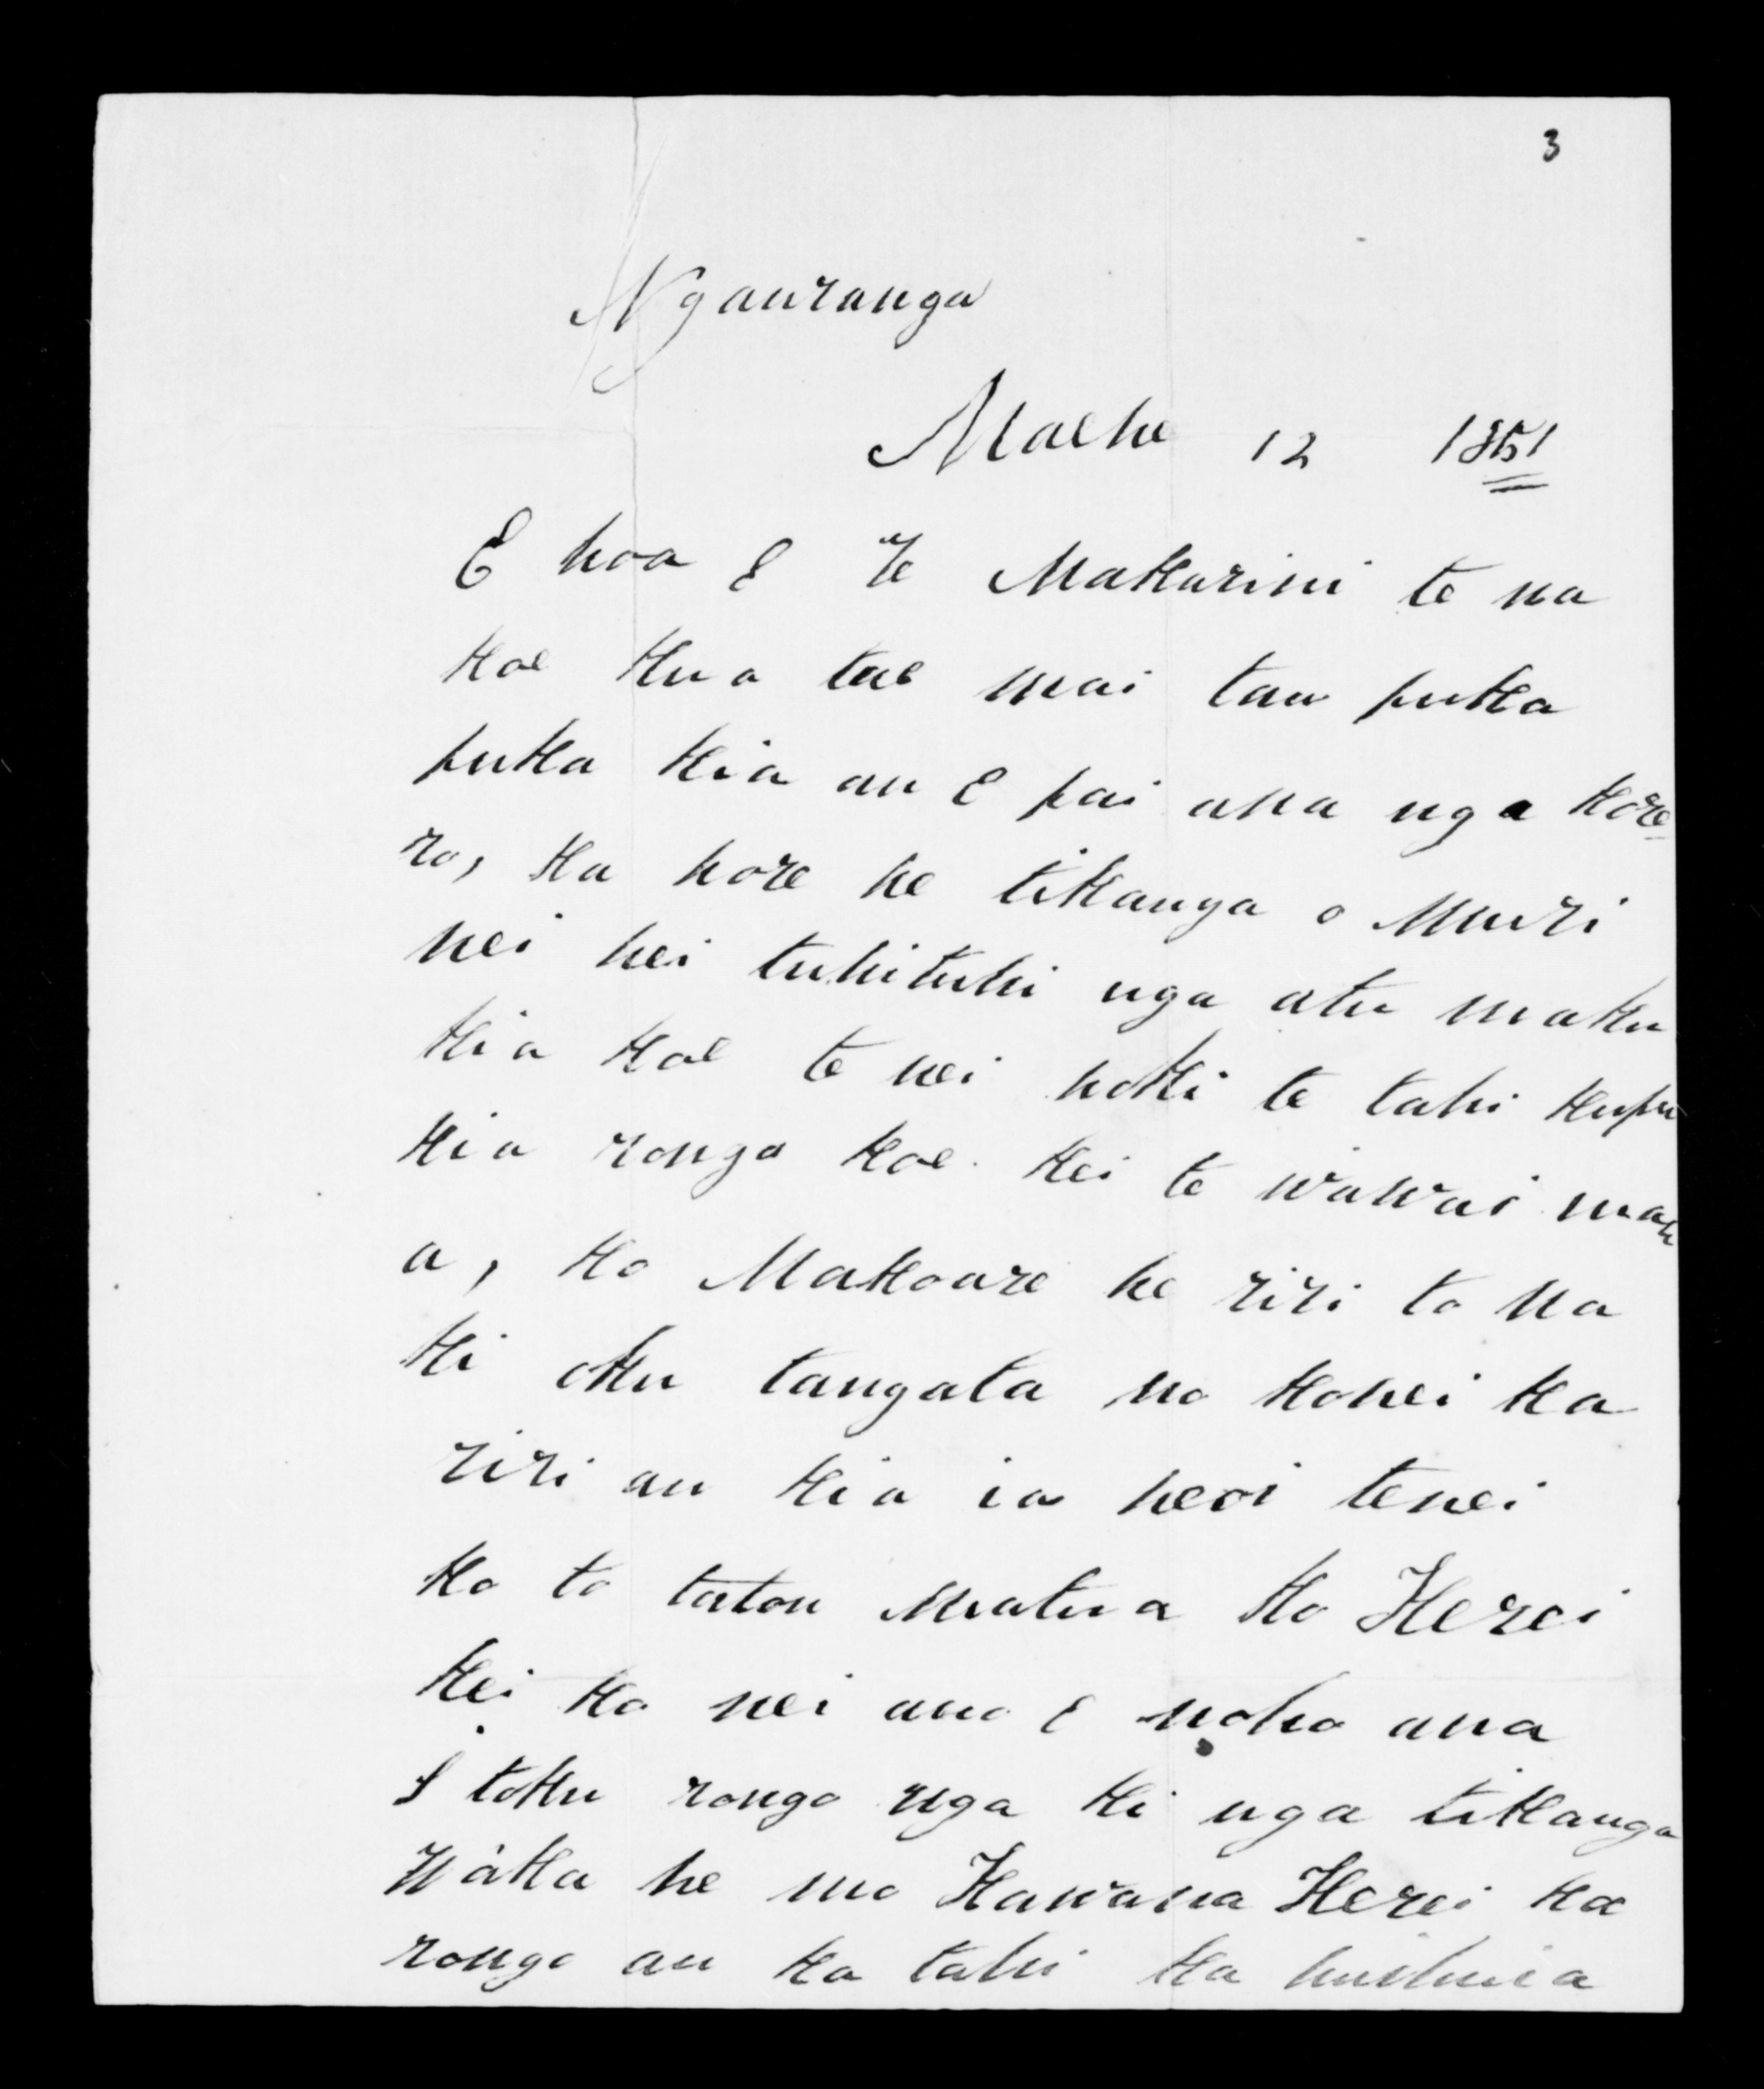 3
Ngauranga
Maehe 12 1851
E hoa E Te Makarini te na
koe kua tae mai tau puka
puka kia au E pai ana nga kore
ro, ka hore he tikanga o Muri
nei hei tuhituhi nga atu maku
kia koe te nei hoki te tahi kupu
kia rongo koe. Kei te wawai mak
a, ko Makoare he riri to na
ki oku tangata no konei ka
riri au kia ia heoi tenei
ko to tatou Matua ko Herei
kei ko nei ano E noho ana
I toku rongo nga ki nga tikanga
Waka he mo Kawana Herei ka
rongo au ka tahi ka huihuia